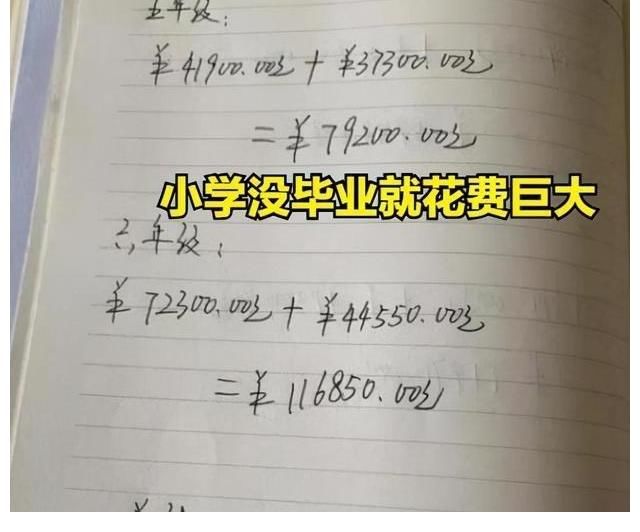 五年级:
¥41900.00元+¥37300.00元
=¥79200.00元
小学没毕业就花费巨大
六年级:
¥72300.00元+¥44550.00元
=¥116850.00元